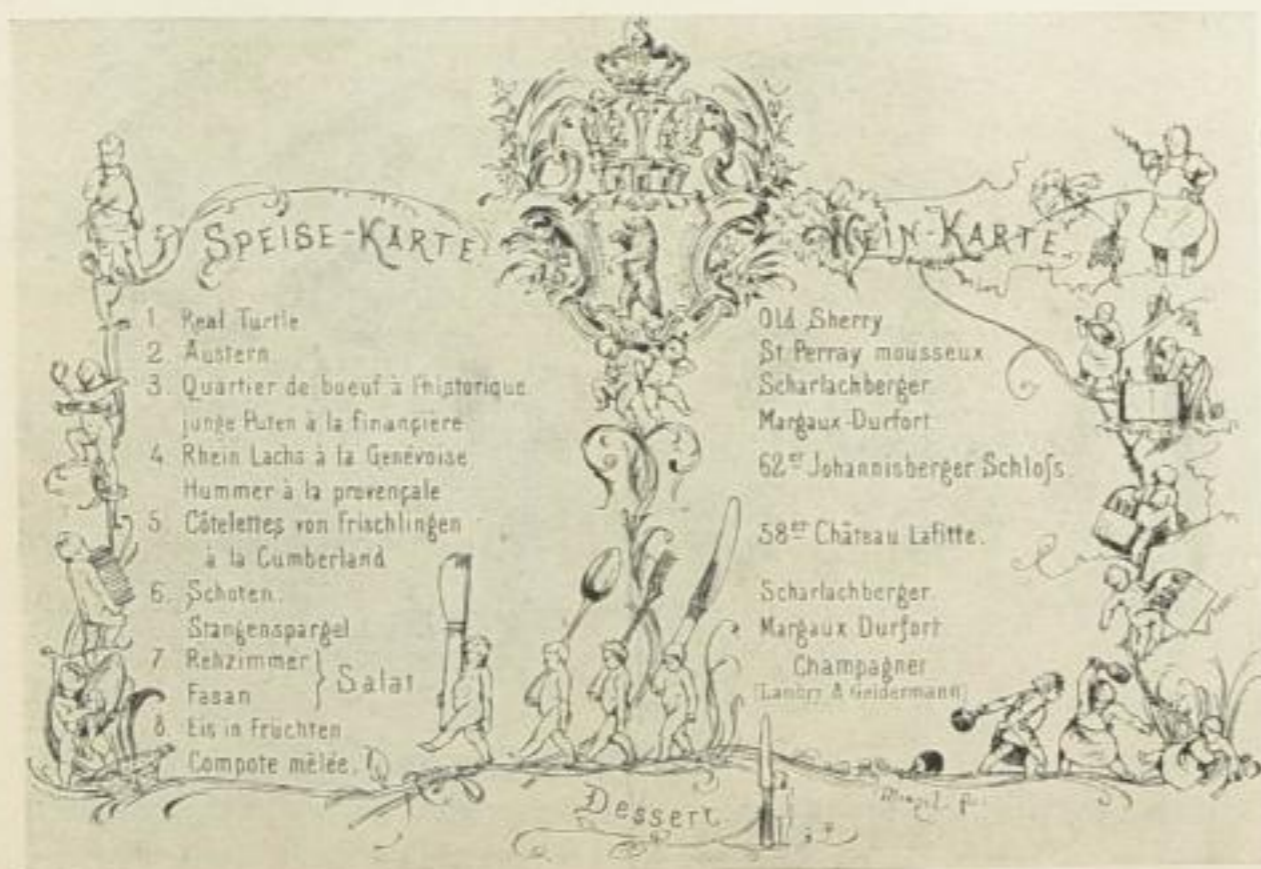 SPEISE-KARTE
1. Real Turtle
2. Austern
3. Quartier de boeuf à l'historique
junge Puten à la financière
4. Rhein Lachs à la Genévoise
Hummer à la provençale
5. Côtelettes von Frischlingen
à la Cumberland
6. Schoten.
Stangenspargel
7. Rehzimmer
Fasan
Salat
8. Eis in Früchten
Compote mêlée.
WEIN-KARTE
Old Sherry
St Perray mousseux
Scharlachberger
Margaux-Durfort
62er Johannisberger Schloſs.
58er Château Lafitte.
Scharlachberger.
Margaux Durfort
Champagner
(Lanbry & Geidermann)
Dessert
Menzel.